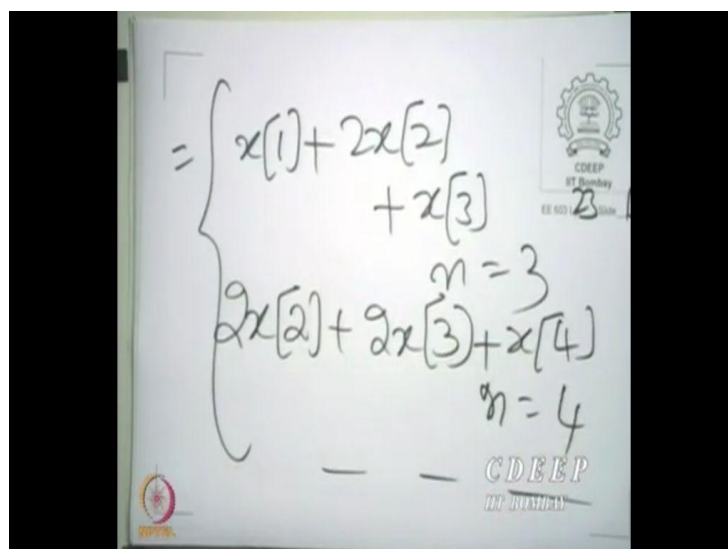 = x[1] + 2x[2]
+ x[3]
n = 3
2x[2] + 2x[3] + x[4]
n = 4
— — —
CDEEP
IIT Bombay
EE 603 L Slide
23
CDEEP
IIT BOMBAY
NPTEL